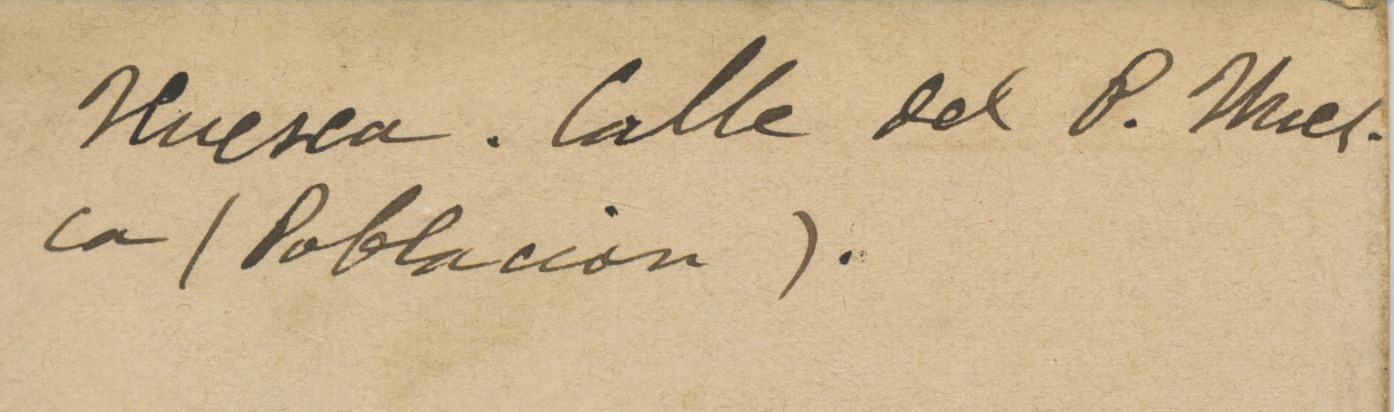 Huesca. Calle del P. Hues-
ca (Poblacion).